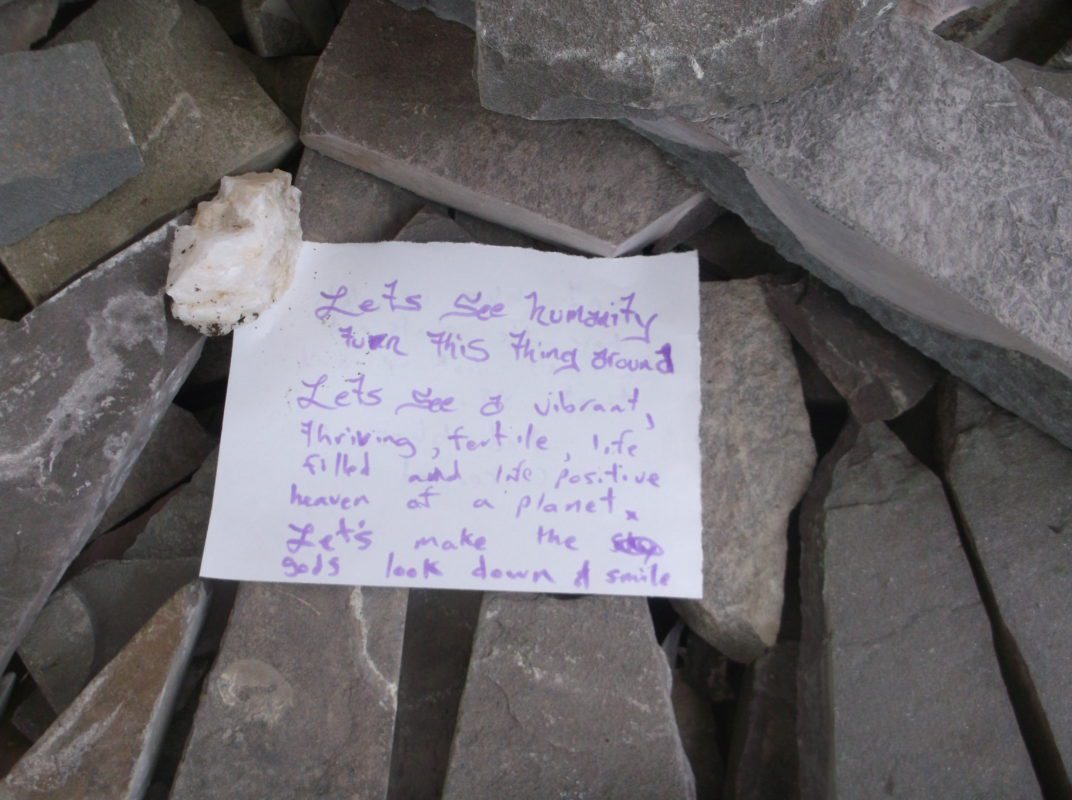 Lets see humanity
turn this thing around
Lets see a vibrant,
thriving, fertile, life
filled and life positive
heaven of a planet.
Let's make the
gods look down & smile